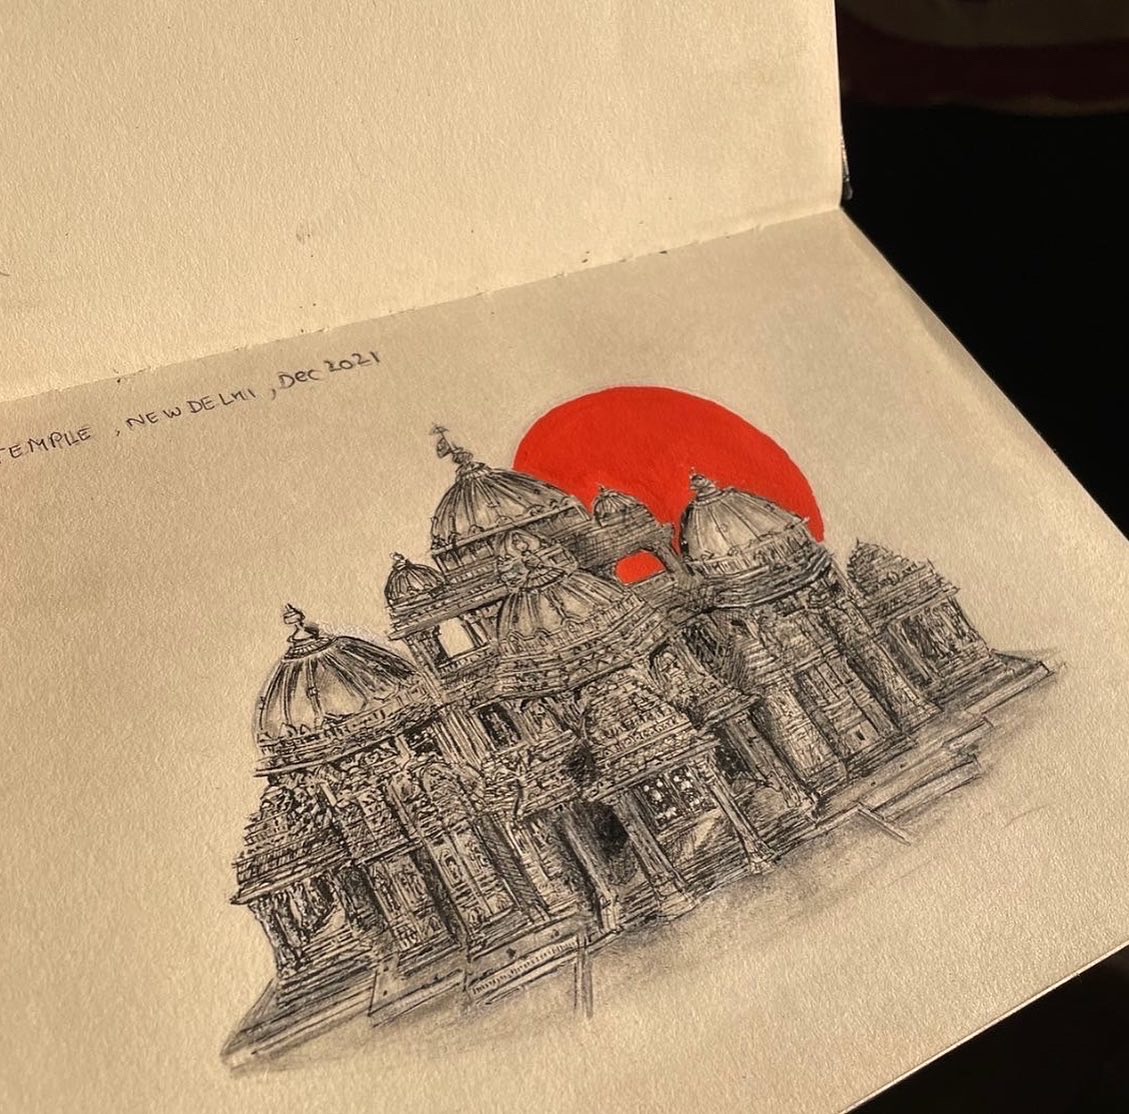 TEMPLE , NEW DELHI , Dec 2021